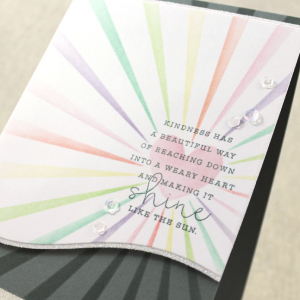 KINDNESS HAS
A BEAUTIFUL WAY
OF REACHING DOWN
INTO A WEARY HEART
AND MAKING IT
shine
LIKE THE SUN.